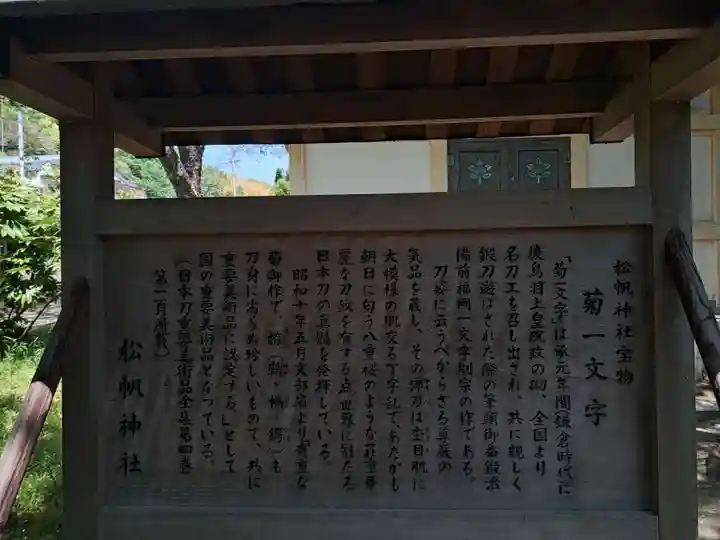 松帆神社宝物
菊一文字
「菊一文字」は承元年間(鎌倉時代)に
後鳥羽上皇院政の砌、全国より
名刀工を召し出され、共に親しく
鍛刀遊ばされた際の筆頭御番鍛冶
備前福岡一文字則宗の作である。
刀姿に云うべからざる尊厳の
気品を蔵し、その渾刃は杢目肌に
大模様の肌交る丁字乱で、あたかも
朝日に匂う八重桜のような荘重華
麗な刀紋を有する点、世界に冠たる
日本刀の真髄を発揮している。
昭和十年五月文部省より「貴重な
菊御作で、拵(鞘・柄・鍔)も
刀身に劣らぬ珍しいもので、共に
重要美術品に認定する。」として
国の重要美術品となっている。
(日本刀重要美術品全集第四巻
第一頁所載)
松帆神社